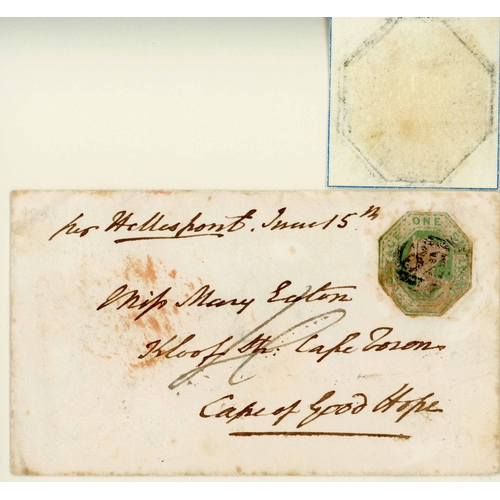 per Hellespont. June 15th
ONE
Miss Mary Egton
Kloof Str. Cape Town
Cape of Good Hope